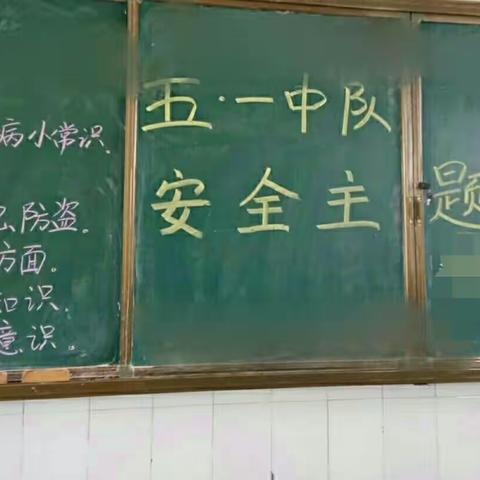 病小常识.
防盗。
方面。
识.
意识。
五·一中队
安全主题